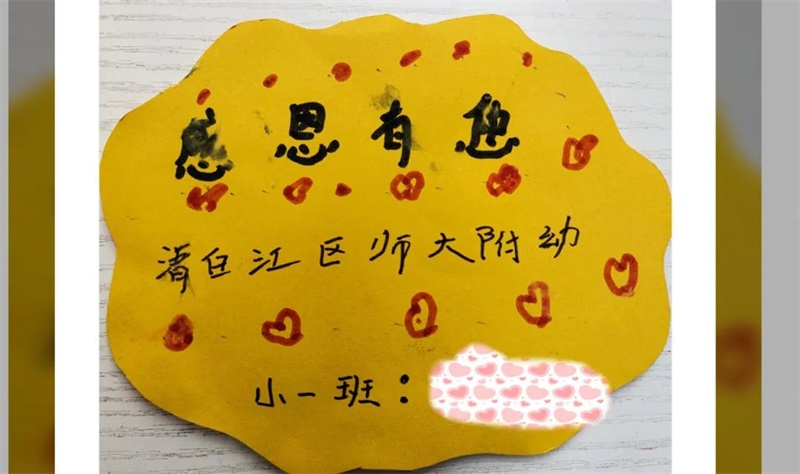 感恩有您
清白江区师大附幼
小一班：